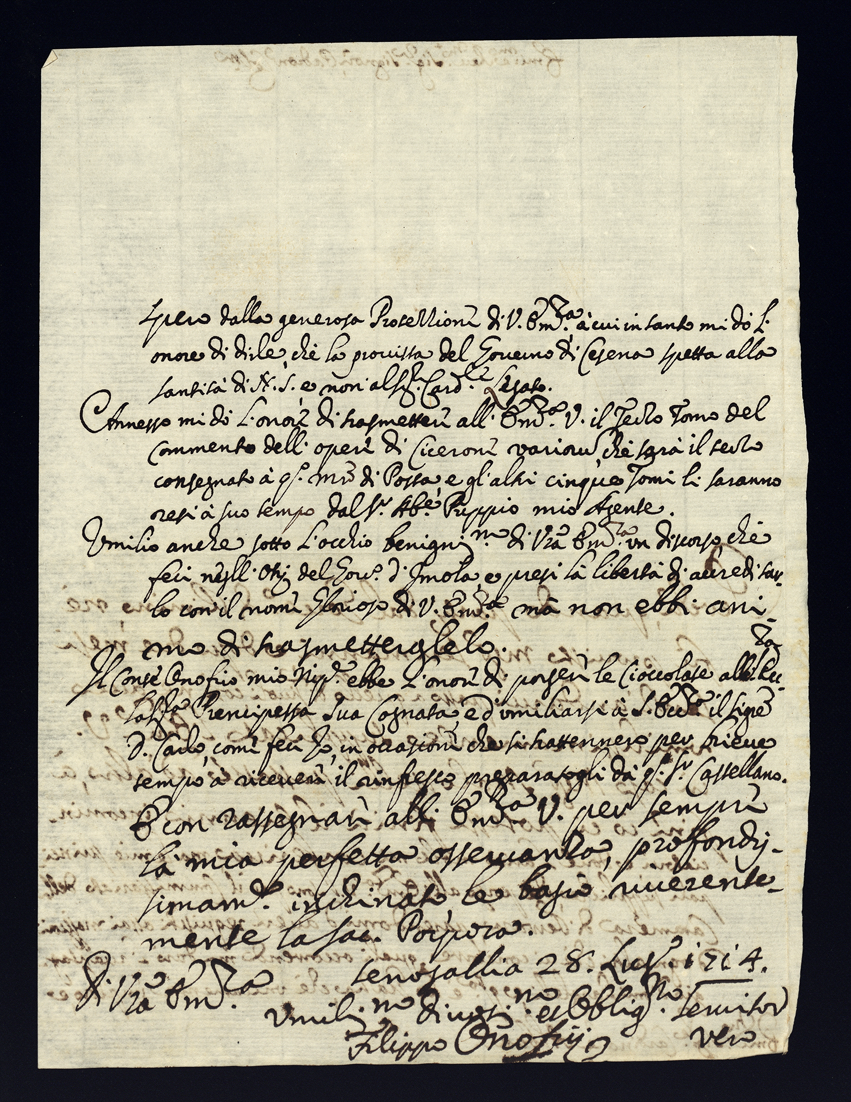 spero dalla generosa Protettione di V. Em.za à cui intanto mi dò l'
onore di dirle, chè la provista del Governo di Cesena spetta alla
santità di N. S. e non al Sig. Card.le Legato.
Annesso mi dò l'onore di trasmettere all' Em.za V. il sesto Tomo del
Commento delli opere di Cicerone variorū chè sarà il sesto
consegnato à q.o Mro di Posta, e gl'altri cinque Tomi li saranno
resi à suo tempo dal S.r Ab.e Puppio mio Agente.
Umilio anche sotto l'occhio benigniss.mo di Vrā Em.za un discorso chè
feci negli Otij del Gov.o d'Imola, e presi la libertà di accredi-
lo con il nome glorioso di V. Em.za mà non ebbi ani-
mo di trasmetterglelo.
Il Conte Onofrio mio Nip.e ebbe l'onore di porgere le Cioccolate alla
Prencipessa sua Cognata e d'umiliarsi à S. Ecc.za il sigre
D. Carlo, come feci Io, in occasione che si trattennero per brieve
tempo à ricevere il rinfresco preparatogli dà q.o S.r Castellano.
E con rassegnare all' Em.za V. per sempre
la mia perfetta osservanza, profondis-
simam.te inchinato le bagio riverente-
mente la sac. Porpora.
Di Vrā Em.za
Senogallia 28. Lug.o 1714.
Umilis.mo divotis.mo et Obblig.mo Servitor
Filippo Onofrij vero